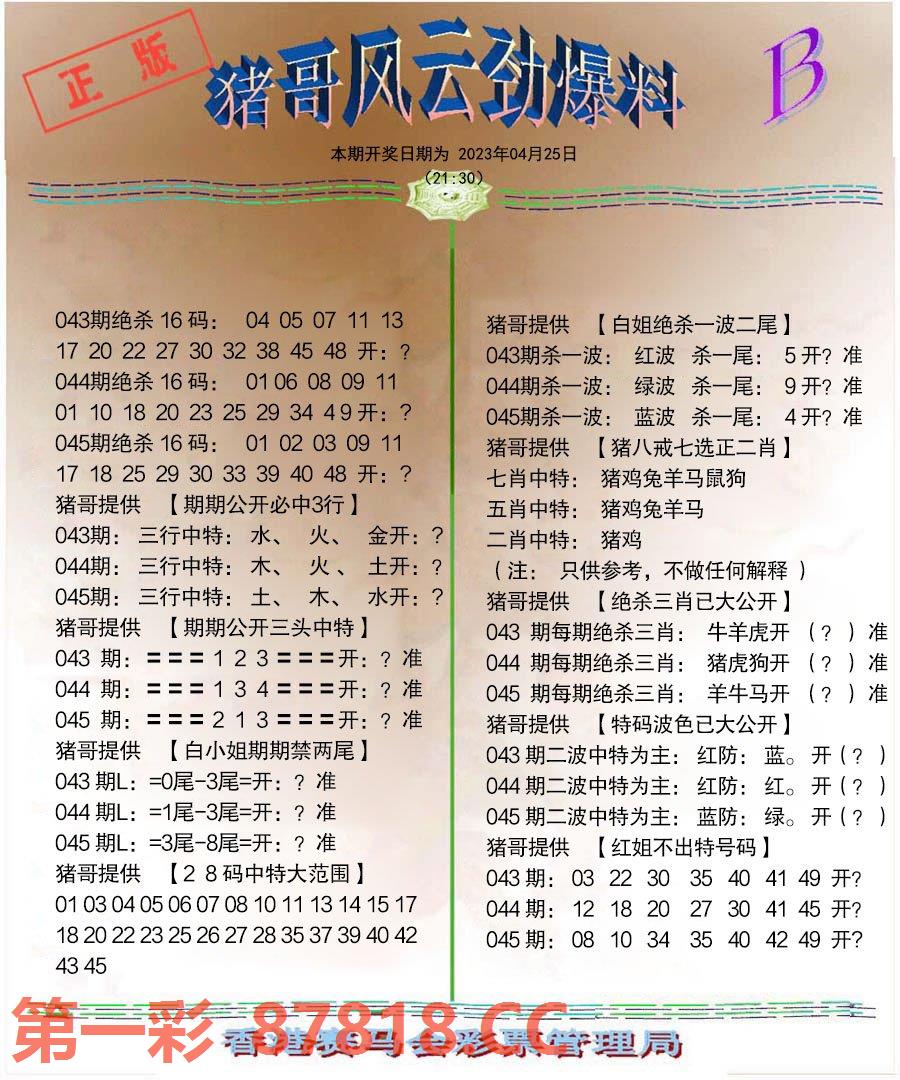 正版
猪哥风云劲爆料
B
本期开奖日期为 2023年04月25日
(21:30)
043期绝杀16码： 04 05 07 11 13
17 20 22 27 30 32 38 45 48 开：？
044期绝杀16码： 01 06 08 09 11
01 10 18 20 23 25 29 34 49开：？
045期绝杀16码： 01 02 03 09 11
17 18 25 29 30 33 39 40 48 开：？
猪哥提供 【期期公开必中3行】
043期：三行中特：水、 火、 金开：？
044期：三行中特：木、 火、 土开：？
045期：三行中特：土、 木、 水开：？
猪哥提供 【期期公开三头中特】
043 期：===1 2 3===开：？准
044 期：===1 3 4===开：？准
045 期：===2 1 3===开：？准
猪哥提供 【白小姐期期禁两尾】
043期L：=0尾-3尾=开：？准
044期L：=1尾-3尾=开：？准
045期L：=3尾-8尾=开：？准
猪哥提供 【28码中特大范围】
01 03 04 05 06 07 08 10 11 13 14 15 17
18 20 22 23 25 26 27 28 35 37 39 40 42
43 45
猪哥提供 【白姐绝杀一波二尾】
043期杀一波： 红波 杀一尾： 5开？准
044期杀一波： 绿波 杀一尾： 9开？准
045期杀一波： 蓝波 杀一尾： 4开？准
猪哥提供 【猪八戒七选正二肖】
七肖中特： 猪鸡兔羊马鼠狗
五肖中特： 猪鸡兔羊马
二肖中特： 猪鸡
（注： 只供参考，不做任何解释）
猪哥提供 【绝杀三肖已大公开】
043 期每期绝杀三肖： 牛羊虎开 （？）准
044 期每期绝杀三肖： 猪虎狗开 （？）准
045 期每期绝杀三肖： 羊牛马开 （？）准
猪哥提供 【特码波色已大公开】
043期二波中特为主：红防：蓝。开（？）
044期二波中特为主：红防：红。开（？）
045期二波中特为主：蓝防：绿。开（？）
猪哥提供 【红姐不出特号码】
043期：03 22 30 35 40 41 49 开?
044期：12 18 20 27 30 41 45 开?
045期：08 10 34 35 40 42 49 开?
第一彩 87818.CC
香港赛马会彩票管理局